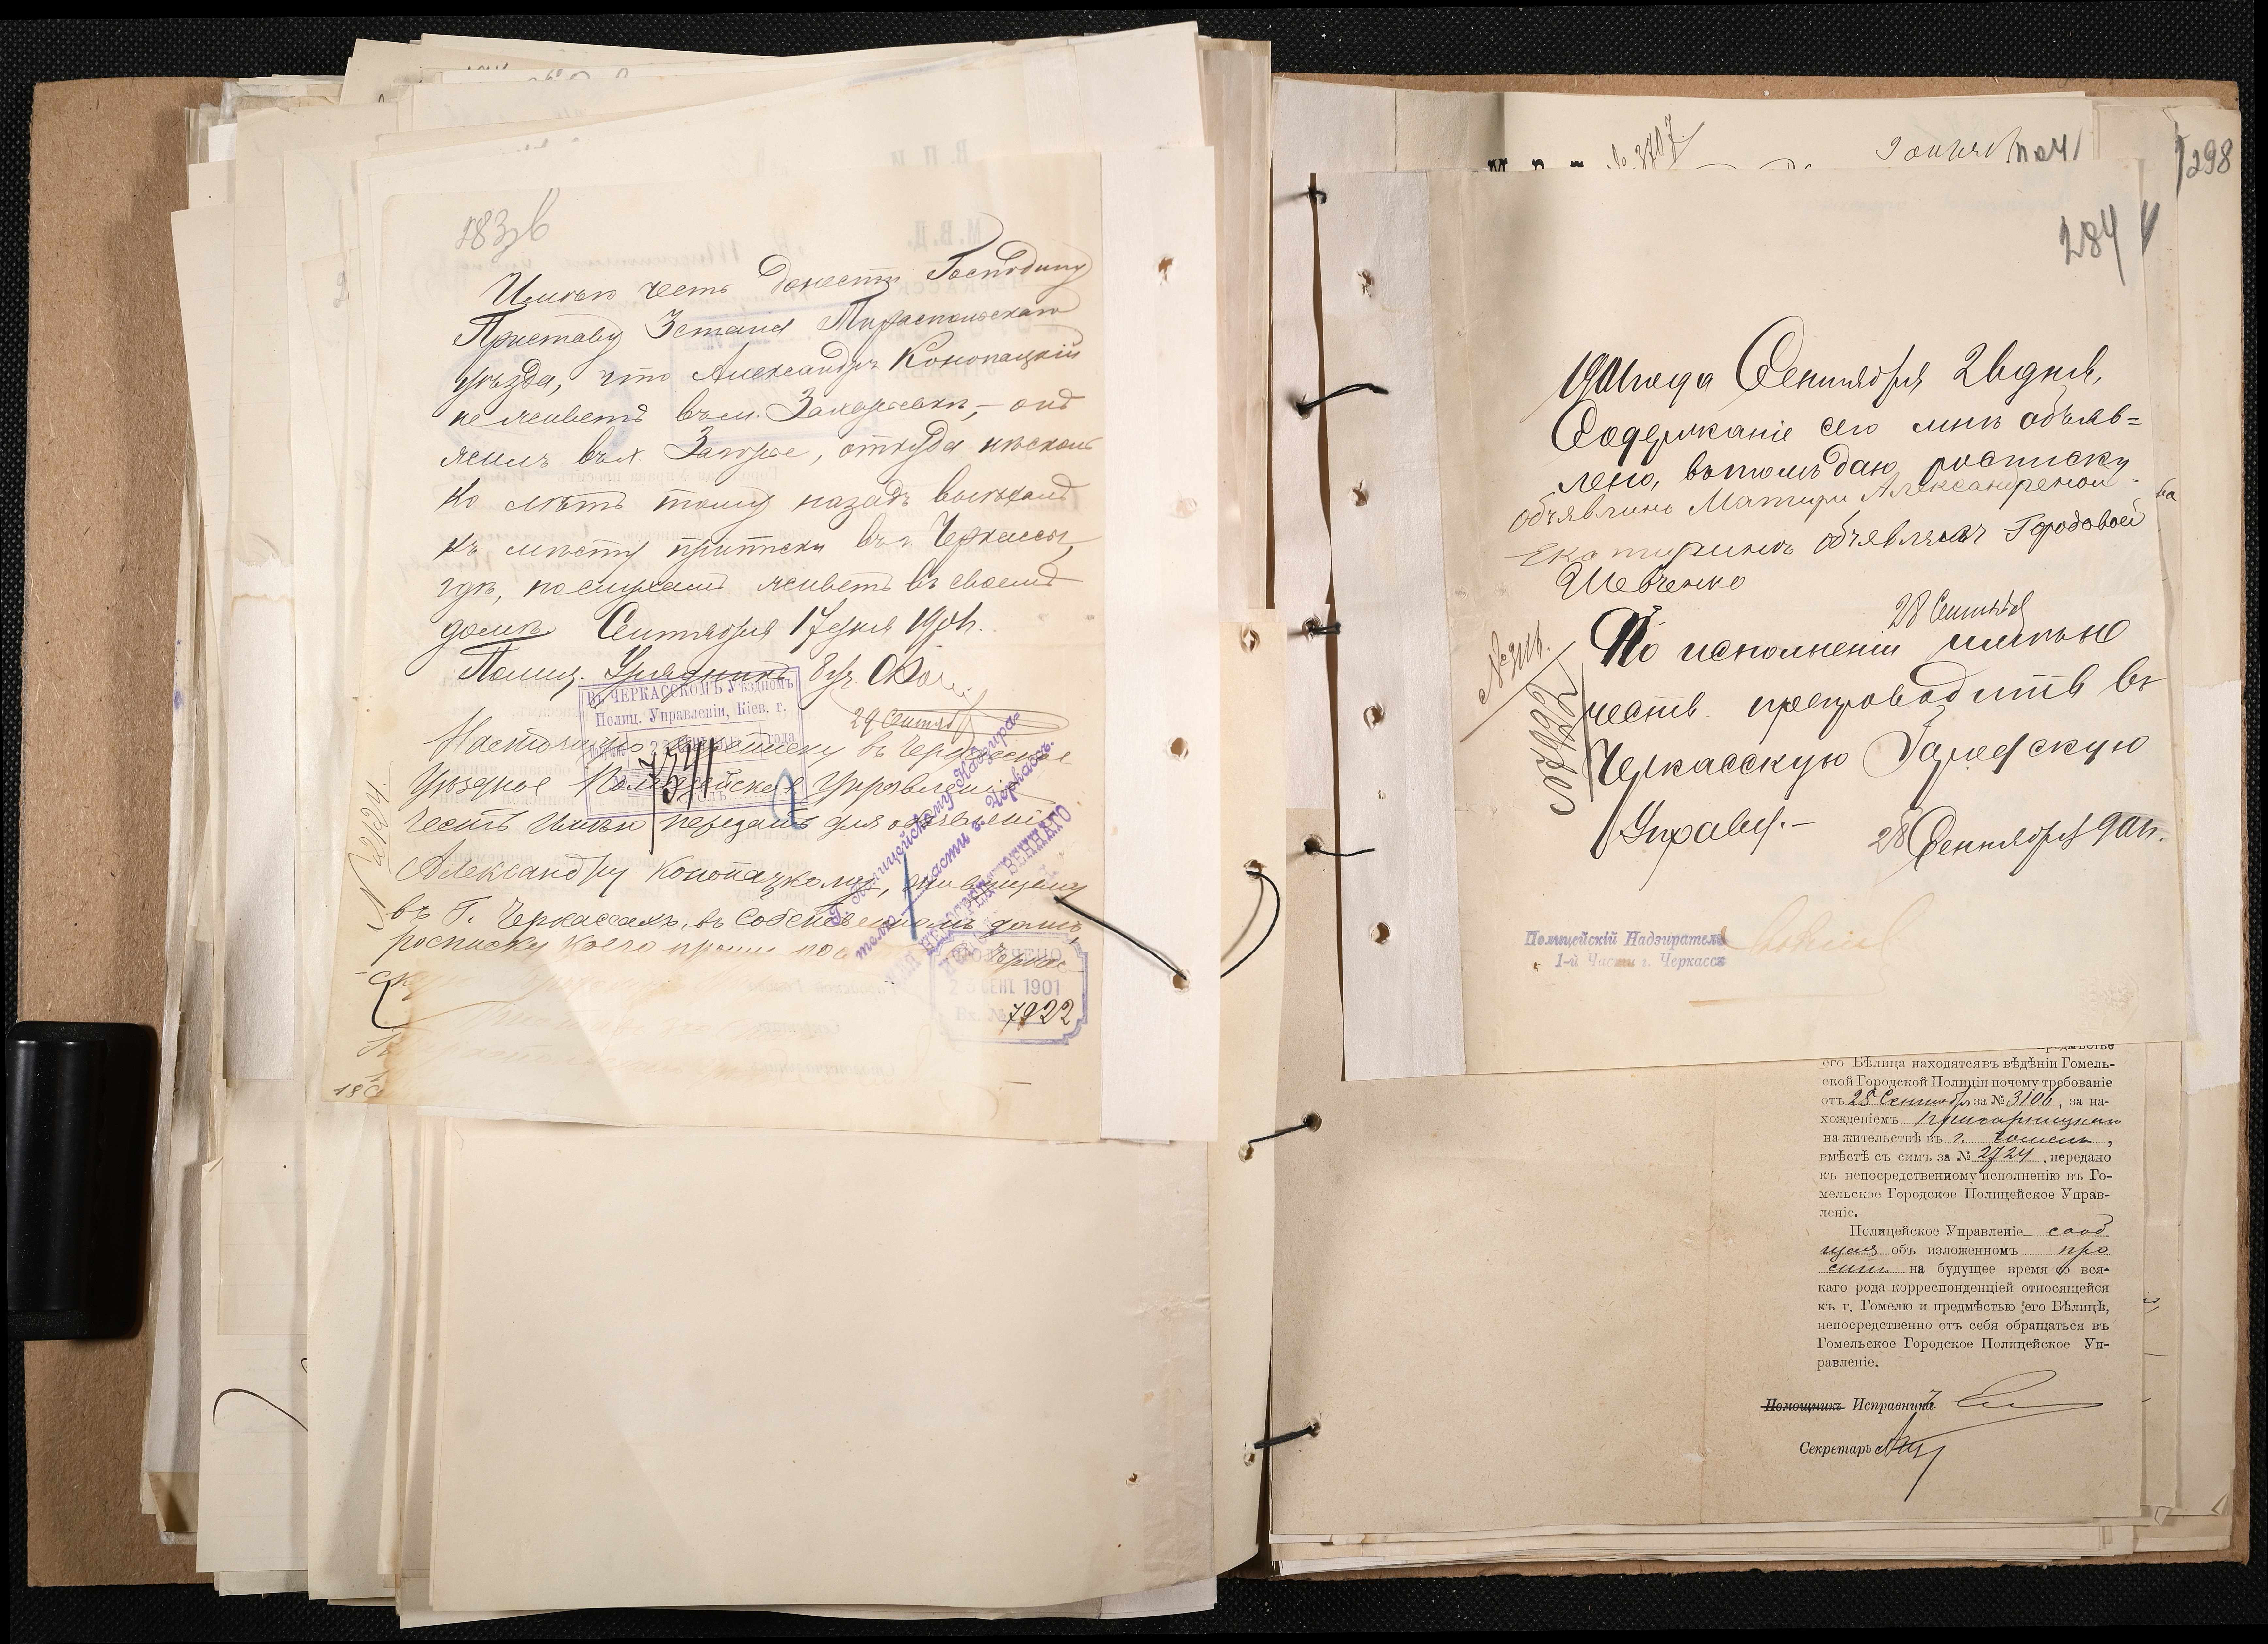 283 зв
Имѣю честь донести Господину
Приставу 3 стана Тираспольскаго
уѣзда, что Александръ Конопацкій
не живетъ въ м. Захарьевкѣ, – онъ
жилъ въ х. Загорье, откуда нѣсколь
ко лѣтъ тому назадъ выѣхалъ
къ мѣсту приписки въ г. Черкассы,
гдѣ, по слухамъ живетъ въ своемъ
домѣ. Сентября 17 дня 1901 г.
Полиц. Урядникъ 8 уч.
ВЪ ЧЕРКАССКОМЪ Уѣздномъ
Полиц. Управленіи, Кіев. г.
года
7541
29 Сентяб
Настоящую переписку въ Черкасское
Уѣздное Полицейское Управленіе
честь имѣю передать для объявленія
Александру Конопацкому, живущему
въ г. Черкассахъ, въ собственномъ домѣ,
росписку коего прошу
N 2124
Г. Полицейскому Надзира-
телю 1 части г. Черкассъ.
ДЛЯ НЕПОСРЕДСТВЕННАГО
ПОЛУЧЕНО
23 СЕН. 1901
Вх. № 7922
№ 3707
298
284
1901 года Сентября 28 дня,
Содержаніе сего мнѣ объяв=
лено, въ томъ даю росписку
объявлино Матири Александреной
Екатиринѣ объявлялъ Городовой
Шевченко
28 Сентября
По исполненіи имѣю
честь препроводить въ
Черкасскую Городскую
Управу.–
28 Сентября 901 г.
Полицейскій Надзиратель
1-й Части г. Черкассъ
его Бѣлица находятся въ вѣдѣніи Гомель-
ской Городской Полиціи почему требованіе
отъ 28 Сентября за № 3106, за на-
хожденіемъ
на жительствѣ въ г. Гомелѣ,
вмѣстѣ съ симъ за № 2724, передано
къ непосредственному исполненію въ Го-
мельское Городское Полицейское Управ-
леніе.
Полицейское Управленіе сооб
щая объ изложенномъ про
ситъ на будущее время со вся-
каго рода корреспонденціей относящейся
къ г. Гомелю и предмѣстью его Бѣлицѣ,
непосредственно отъ себя обращаться въ
Гомельское Городское Полицейское Уп-
равленіе.
Помощникъ Исправникъ
Секретарь